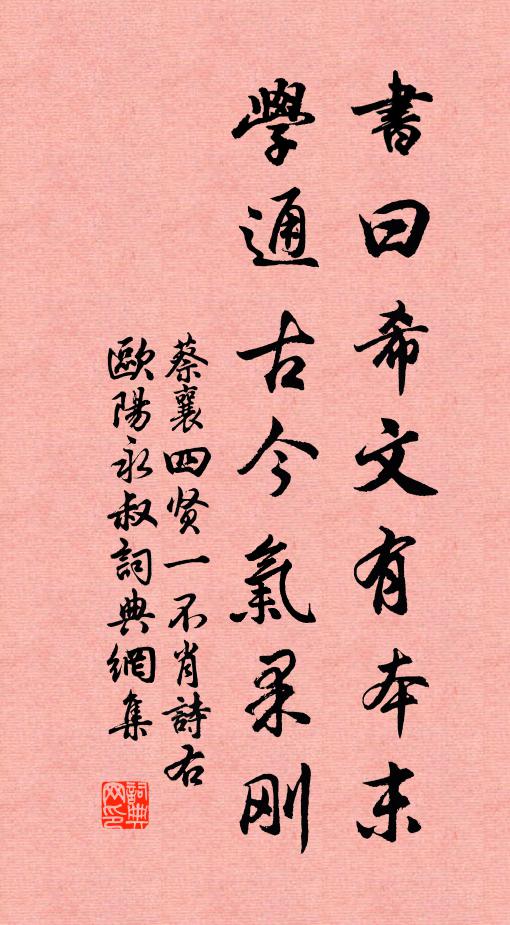 書曰希文有本末
學通古今氣果刚
蔡襄四贤一不肖詩右
歐陽永叔詞典網集
詞典网印